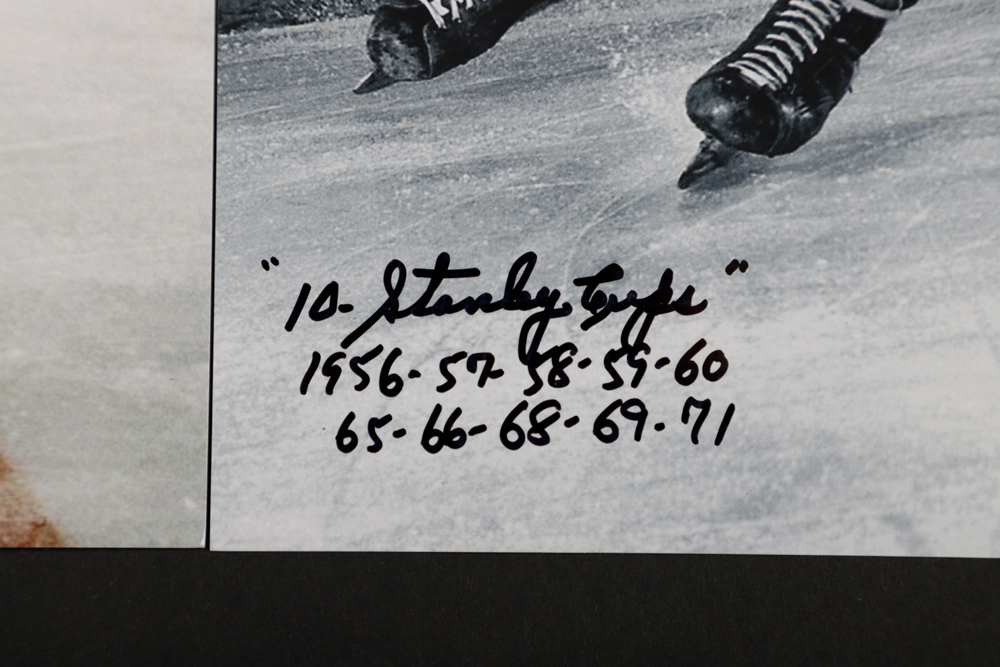 "10- Stanley Cups"
1956-57-58-59-60
65-66-68-69-71